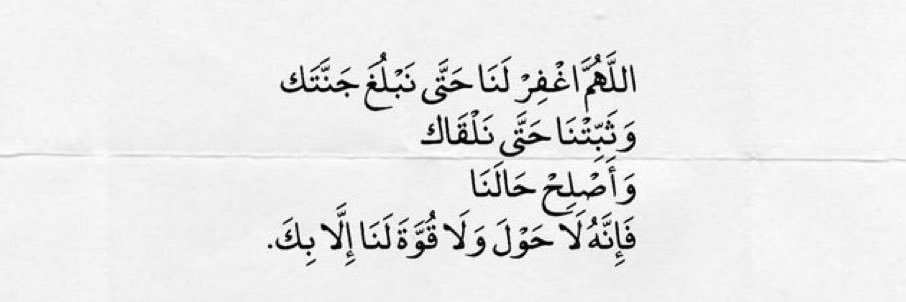 اللَّهُمَّ اغْفِرْ لَنَا حَتَّى نَبْلُغَ جَنَّتَك
وَثَبِّتْنَا حَتَّى نَلْقَاك
وَأَصْلِحْ حَالَنَا
فَإِنَّهُ لَا حَوْلَ وَلَا قُوَّةَ لَنَا إِلَّا بِكَ.